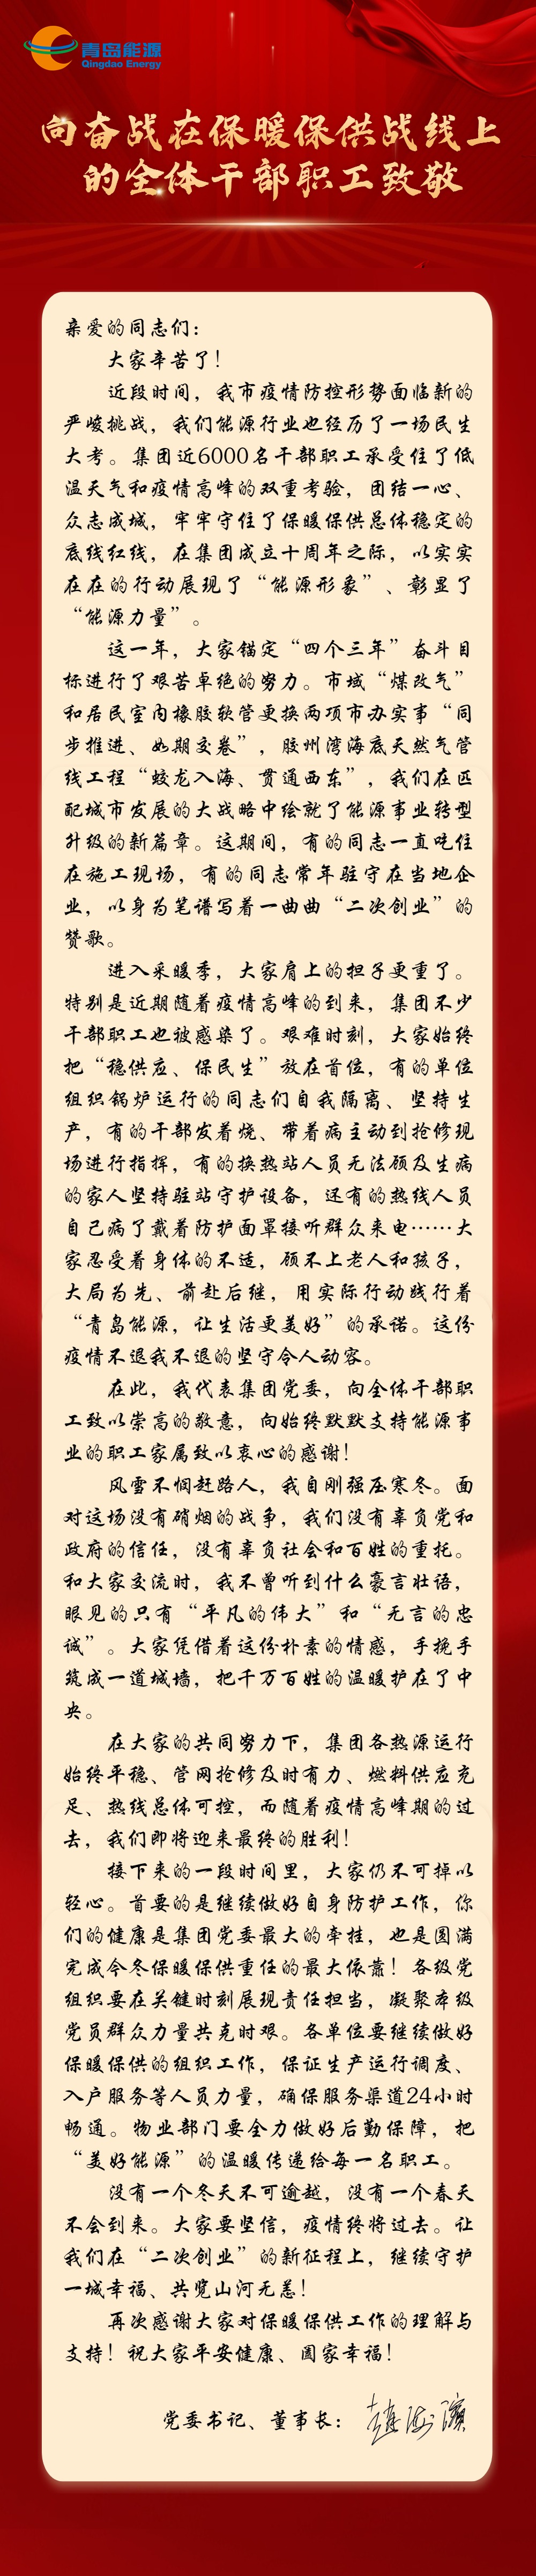 青岛能源
Qingdao Energy
向奋战在保暖保供战线上
的全体干部职工致敬
亲爱的同志们：
大家辛苦了！
近段时间，我市疫情防控形势面临新的
严峻挑战，我们能源行业也经历了一场民生
大考。集团近6000名干部职工承受住了低
温天气和疫情高峰的双重考验，团结一心、
众志成城，牢牢守住了保暖保供总体稳定的
底线红线，在集团成立十周年之际，以实实
在在的行动展现了“能源形象”、彰显了
“能源力量”。
这一年，大家锚定“四个三年”奋斗目
标进行了艰苦卓绝的努力。市域“煤改气”
和居民室内橡胶软管更换两项市办实事“同
步推进、如期交卷”，胶州湾海底天然气管
线工程“蛟龙入海、贯通西东”，我们在匹
配城市发展的大战略中绘就了能源事业转型
升级的新篇章。这期间，有的同志一直吃住
在施工现场，有的同志常年驻守在当地企
业，以身为笔谱写着一曲曲“二次创业”的
赞歌。
进入采暖季，大家肩上的担子更重了。
特别是近期随着疫情高峰的到来，集团不少
干部职工也被感染了。艰难时刻，大家始终
把“稳供应、保民生”放在首位，有的单位
组织锅炉运行的同志们自我隔离、坚持生
产，有的干部发着烧、带着病主动到抢修现
场进行指挥，有的换热站人员无法顾及生病
的家人坚持驻站守护设备，还有的热线人员
自己病了戴着防护面罩接听群众来电……大
家忍受着身体的不适，顾不上老人和孩子，
大局为先、前赴后继，用实际行动践行着
“青岛能源，让生活更美好”的承诺。这份
疫情不退我不退的坚守令人动容。
在此，我代表集团党委，向全体干部职
工致以崇高的敬意，向始终默默支持能源事
业的职工家属致以衷心的感谢！
风雪不悯赶路人，我自刚强压寒冬。面
对这场没有硝烟的战争，我们没有辜负党和
政府的信任，没有辜负社会和百姓的重托。
和大家交流时，我不曾听到什么豪言壮语，
眼见的只有“平凡的伟大”和“无言的忠
诚”。大家凭借着这份朴素的情感，手挽手
筑成一道城墙，把千万百姓的温暖护在了中
央。
在大家的共同努力下，集团各热源运行
始终平稳、管网抢修及时有力、燃料供应充
足、热线总体可控，而随着疫情高峰期的过
去，我们即将迎来最终的胜利！
接下来的一段时间里，大家仍不可掉以
轻心。首要的是继续做好自身防护工作，你
们的健康是集团党委最大的牵挂，也是圆满
完成今冬保暖保供重任的最大依靠！各级党
组织要在关键时刻展现责任担当，凝聚本级
党员群众力量共克时艰。各单位要继续做好
保暖保供的组织工作，保证生产运行调度、
入户服务等人员力量，确保服务渠道24小时
畅通。物业部门要全力做好后勤保障，把
“美好能源”的温暖传递给每一名职工。
没有一个冬天不可逾越，没有一个春天
不会到来。大家要坚信，疫情终将过去。让
我们在“二次创业”的新征程上，继续守护
一城幸福、共览山河无恙！
再次感谢大家对保暖保供工作的理解与
支持！祝大家平安健康、阖家幸福！
党委书记、董事长：